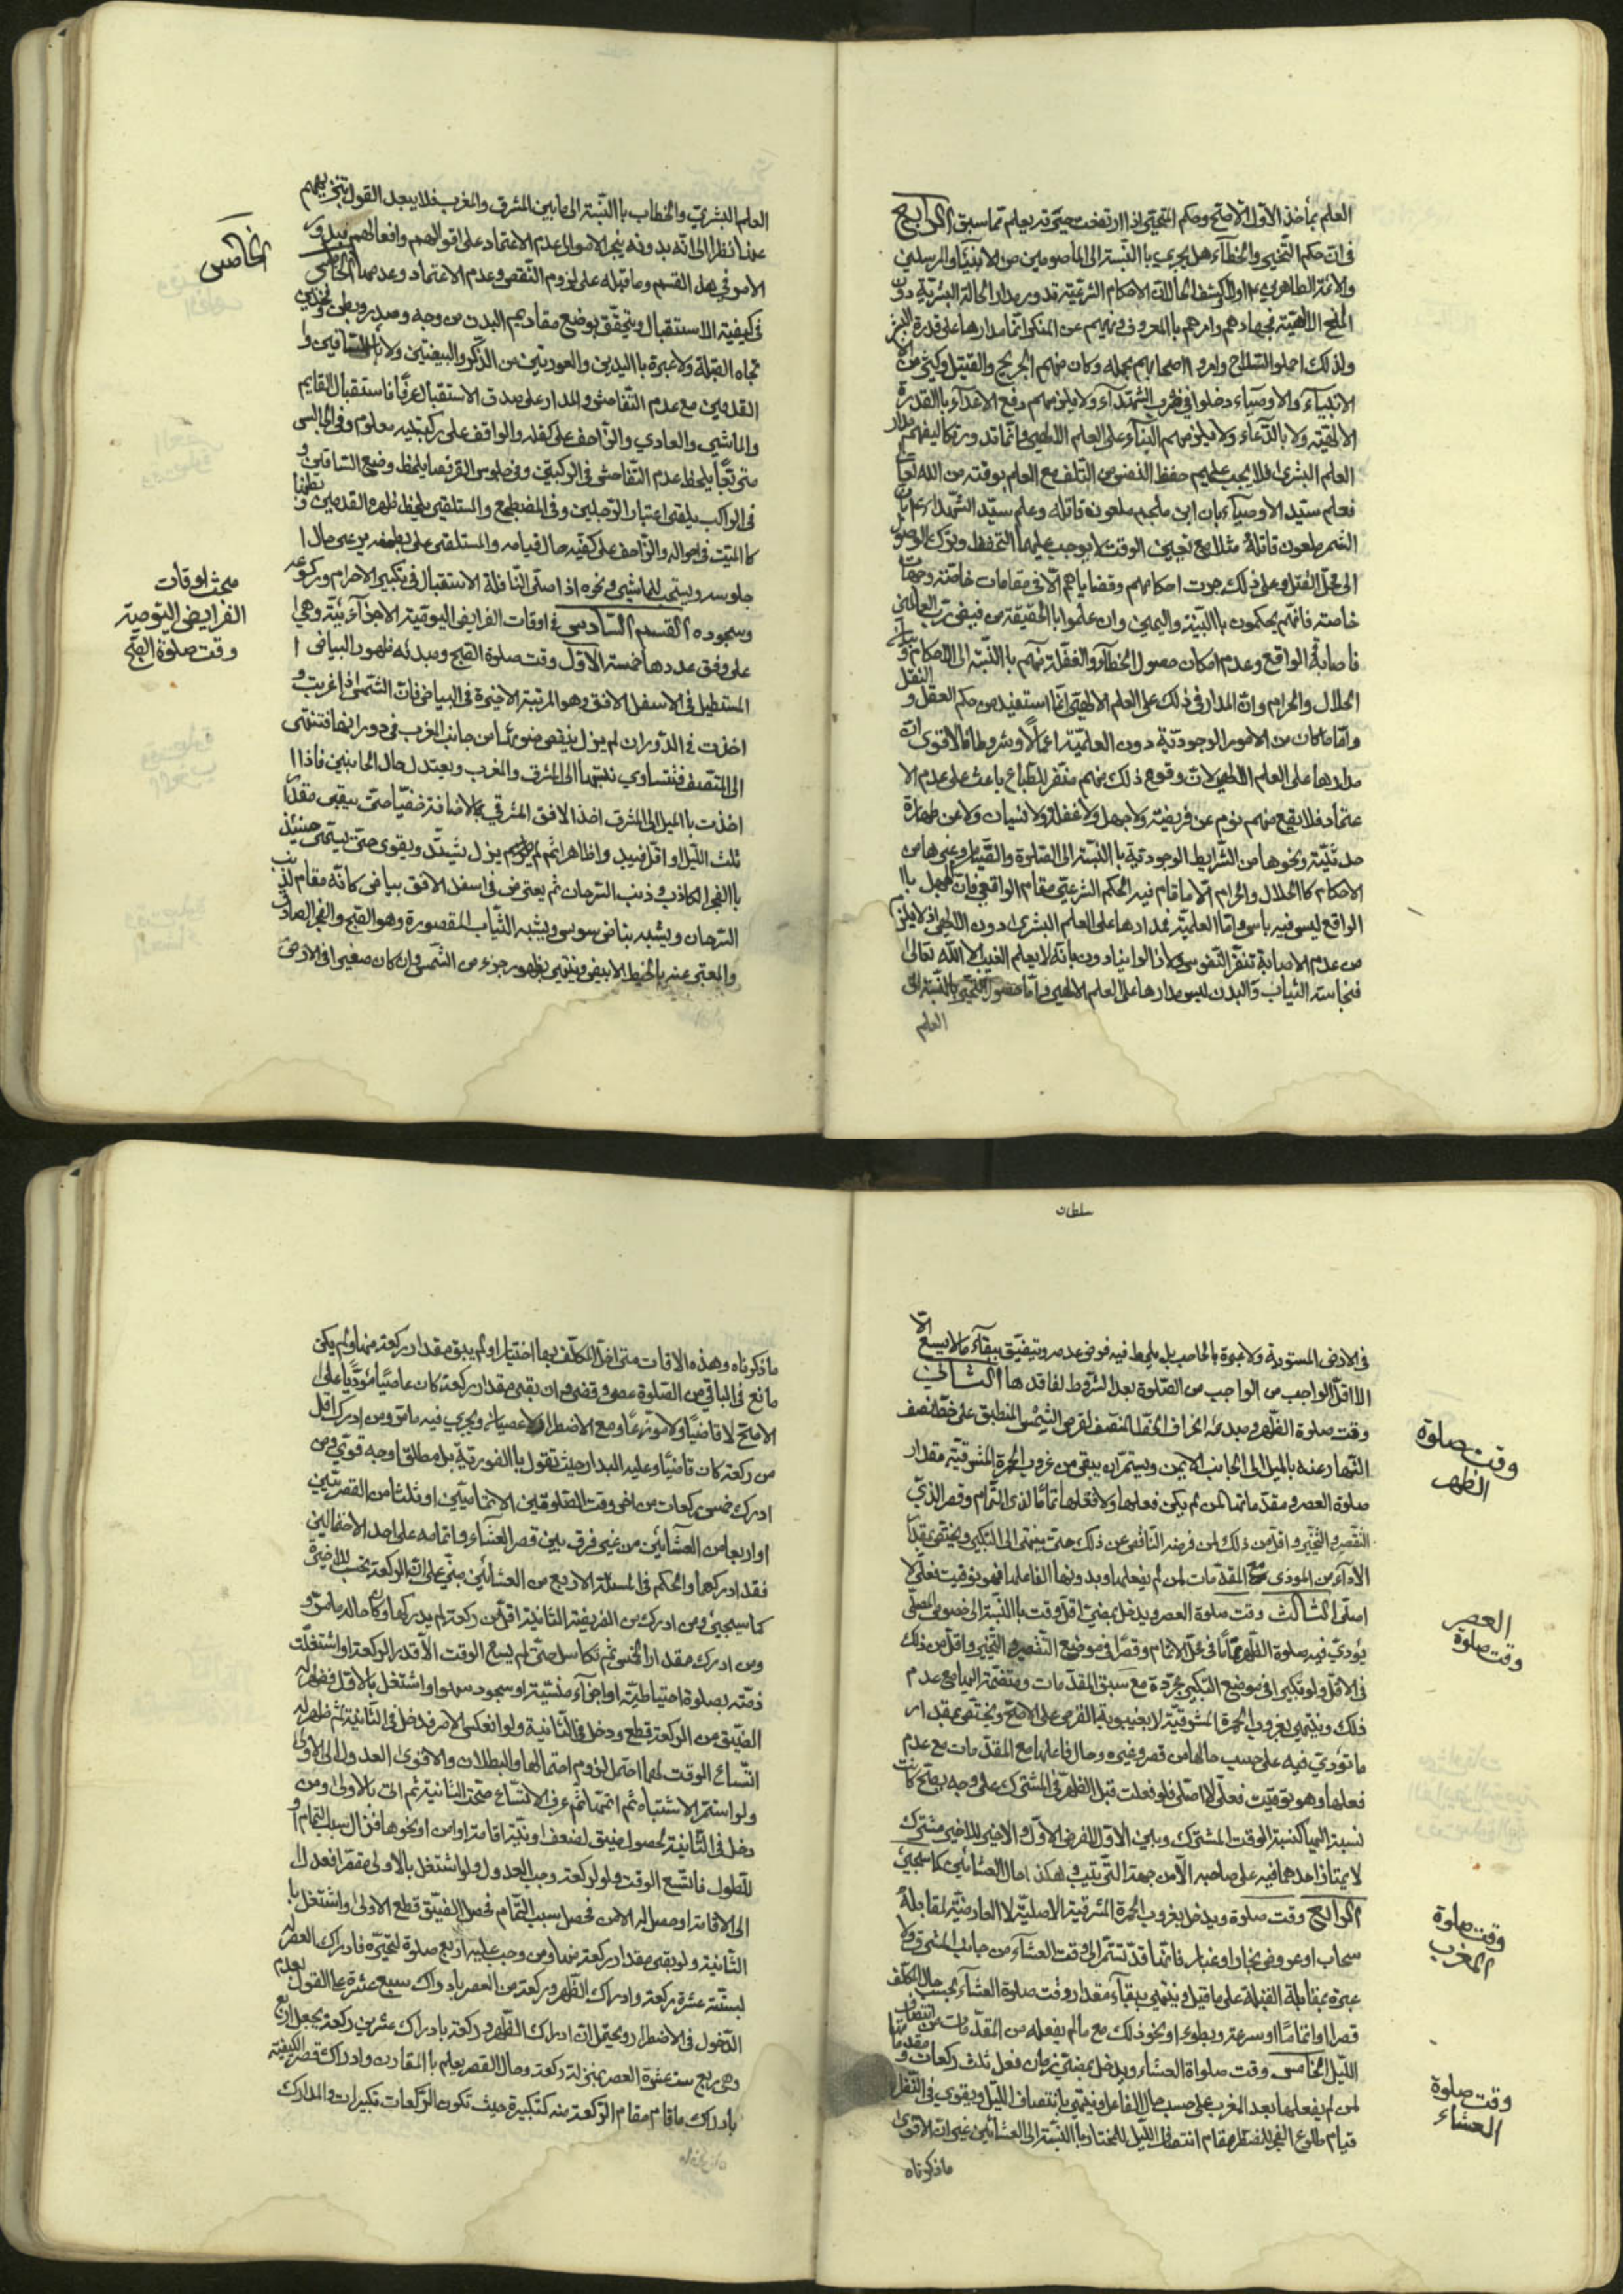 العلم بمأخذ الاول الاصح وحكم التحير اذا ارتفعت حتى قد يعلم مما سبق الرابع
في ان حكم التخيير والخطاء هل يجري بالنسبة الى المعصومين من الانبياء والمرسلين
والائمة الطاهرين اولا لكشف الحال ان الاحكام الشرعية تدور مدار الحالة البشرية دون
المنح الالهية فجهادهم وامرهم بالمعروف ونهيهم عن المنكر انما مدارها على قدرة البشر
ولذلك احملوا السلاح وامروا اصحابهم بحمله وكان منهم الجريح والقتيل وكثير من
الانبياء والاوصياء دخلوا في ضرب الشهداء ولا يلزمهم دفع الاعداء بالقدرة
الالهية ولا بالدعاء ولا يلزمهم البناء على العلم اللطفي وانما تدور تكاليفهم مدار
العلم البشري فلا يجب عليهم حفظ النفس من التلف مع العلم بوقته من الله تعالى
فعلم سيد الاوصياء بان ابن ملجم ملعونة قاتله وعلم سيد الشهداء بان
الشمر ملعون قاتله مثلا مع تعيين الوقت لا يوجب عليهما التحفظ وترك الوصول
الى محل القتل وعلى ذلك جرت احكامهم وقضاياهم الا في مقامات خاصة وجهات
خاصة فانهم يحكمون بالبينة واليمين وان علموا بالحقيقة من فيض رب العالمين
فاصابة الواقع وعدم امكان حصول الخطاء والغفلة منهم بالنسبة الى الاحكام وبيان
الحلال والحرام وان المدار في ذلك على العلم الالهي انما استفيد من حكم العقل والنقل
واما ما كان من الامور الوجودية دون العلمية اعمالا وشروطا فالاقوى ان
مدارها على العلم اللطفي لان وقوع ذلك منهم منفر للطباع باعث على عدم الا
عتماد فلا يقع منهم نوم عن فريضة ولا جهل ولا غفلة ولا نسيان ولا عن طهارة
حدثية ونحوها من الشرايط الوجودية بالنسبة الى الصلوة والصيام وغيرها من
الاحكام كالحلال والحرام الا ما قام فيه الحكم الشرعي مقام الواقعي فان الجهل با
الواقع ليس فيه باس واما العلمية فمدارها على العلم البشري دون اللطفي اذ لا يلزم
من عدم الاصابة تنفر النفوس ولا زالوا ينادون بانه لا يعلم الغيب الا الله تعالى
فنجاسة الثياب والبدن ليس مدارها على العلم الالهي واما حصول التحير بالنسبة الى
العلم
العلم البشري والخطاب بالنسبة الى ما بين المشرق والمغرب فلا يبعد القول بتنزيههم
عنها نظرا الى انه بدونه ينجر الامر الى عدم الاعتماد على اقوالهم وافعالهم فيدور
الامر في هذا القسم وما قبله على لزوم النقص وعدم الاعتماد وعدمهما الخامس
في كيفية الاستقبال ويتحقق بوضع مقاديم البدن من وجه وصدر وبطن وفخذين
تجاه القبلة ولا عبرة باليدين والعورتين من الذكر والبيضتين ولا بالساقين و
القدمين مع عدم التفاحش والمدار على صدق الاستقبال عرفا فاستقبال القايم
والماشي والعادي والزاحف على كفله والواقف على ركبتيه معلوم وفي الجالس
متربعا يلحظ عدم التفاحش في الركبتين وفي جلوس القرفصا يلحظ وضع الساقين و
في الراكب يلقى اعتبار الرجلين وفي المضطجع والمستلقي يلحظ ظهر القدمين وبطنها
كالميت في احواله والزاحف على كفيه حال قيامه والمستلقي على بطنه يرعى حال
جلوسه ويستحب للماشي ونحوه اذا صلى النافلة الاستقبال في تكبير الاحرام وركوعه
وسجوده القسم السادس في اوقات الفرايض اليومية الاجزائية وهي
على وفق عددها خمسة الاول وقت صلوة الصبح ومبدئه ظهور البياض ا
المستطيل في الاسفل الافق وهو المرتبة الاخيرة في البياض فان الشمس اذا غربت و
اخذت في الدوران لم يزل ينقص ضوئها من جانب الغرب في دورانها فتنتهي
الى المنتصف فتتساوي نسبتها الى المشرق والمغرب ويعتدل حال الجانبين فاذا
اخذت بالميل الى المشرق اخذ الافق المشرقي بالاضائة خفيا حتى يبقى مقدار
ثلث الليل او اقل فيبدو ظاهرا ثم لم يزل يشتد ويقوى حتى يسمى حينئذ
بالفجر الكاذب وذنب السرحان ثم يعترض في اسفل الافق بياض كانه مقام لذنب
السرحان ويشبه بياض سورى ويشبه الثياب المقصورة وهو الصبح والفجر الصادق
والمعبر عنه بالخيط الابيض وينتهي بظهور جزء من الشمس وان كان صغيرا في الارض
الخامس
مبحث اوقات
الفرايض اليومية
وقت صلوة الصبح
سلطان
في الارض المستوية ولا عبرة بالحاجب بل يلحظ فيه فرض عدمه ويتضيق ببقاء ما لا يسع الا
الا اقل الواجب من الواجب من الصلوة بعد الشروط لفاقدها الثاني
وقت صلوة الظهر ومبدئه انحراف الخط المنصف لقرص الشمس المنطبق على خط نصف
النهار عنه بالميل الى الجانب الايمن ويستمر ان يبقى من غروب الحمرة المشرقية مقدار
صلوة العصر ومقدماتها لمن لم يكن فعلها ولا فعلها تماما لذي التمام وقصر الذي
التقصير والتخيير واقل من ذلك لمن فرضه الناقص عن ذلك حتى ينتهي الى التكبير ويختص بمقدار
الاداء من المودى مع المقدمات لمن لم يفعلها وبدونها لفاعلها فهو توقيت فعلي لا
اصلي الثالث وقت صلوة العصر ويدخل بمضي اقل وقت بالنسبة الى خصوص المصلي
يؤدي فيه صلوة الظهر تماما في محل الاتمام وقصرا في موضع التقصير والتخيير واقل من ذلك
في الاقل ولو تكبيرا في موضع التكبير مجردة مع سبق المقدمات ومنضمة اليها مع عدم
ذلك وينتهي بغروب الحمرة المشرقية لا بغيبوبة القرص على الاصح ويختص بمقدار
ما تودي فيه على حسب حالها من قصر وغيره وحال فاعلها مع المقدمات مع عدم
فعلها وهو توقيت فعلي لا اصلي فلو فعلت قبل الظهر في المشترك على وجه يصح كانت
نسبة اليها كنسبة الوقت المشترك وبين الاول للفرض الاول والاخير للاخير مشترك
لا يمتاز احدهما فيه على صاحبه الا من جهة الترتيب وهكذا حال العشائين كما سيجيئ
الرابع وقت صلوة ويدخل بغروب الحمرة المشرقية الاصلية لا العارضية لمقابلة
سحاب او عروض بخار او غبار فانها قد تستمر الى وقت العشاء من جانب المشرق ولا
عبرة بمقابلة القبلة على ما قيل وينتهي ببقاء مقدار وقت صلوة العشاء بحسب حال المكلف
قصرا واتماما او سرعة وبطوء او نحو ذلك مع ما لم يفعله من المقدمات من انتصاف
الليل الخامس وقت صلواة العشاء ويدخل بمضي زمان فعل ثلث ركعات ومقدماتها
لمن لم يفعلها بعد المغرب على حسب حال الفاعل وينتهي بانتصاف الليل ويقوى في النظر
قيام طلوع الفجر للمضطر مقام انتصاف الليل للمختار بالنسبة الى العشائين غير ان الاقوى
ما ذكرناه
وقت صلوة
الظهر
العصر
وقت صلوة
وقت صلوة
المغرب
وقت صلوة
العشاء
ما ذكرناه وهذه الاقات متى اخل المكلف بها اختيارا ولم يبق مقدار ركعة منها ولم يكن
مانع في الباقي من الصلوة عصى وقضى وان بقى مقدار ركعة كان عاصيا مؤديا على
الاصح لا قاضيا ولا موزعا ومع الاضطرار لا عصيان ويجري فيه ما مر ومن ادرك اقل
من ركعة كان قاضيا وعليه البدار حيث نقول بالفورية بل مطلقا وجه قوي ومن
ادرك خمس ركعات من اخر وقت الصلوتين الاتماميتين او ثلثا من القصريتين
او اربعا من العشائين من غير فرق بين قصر العشاء واتمامه على احد الاحتمالين
فقد ادركهما والحكم في المسئلة الاربع من العشائين مبني على ان الركعة تحسب للاخيرة
كما سيجيئ ومن ادرك من الفريضة الثانية اقل من ركعة لم يدركها وكان حاله ما مر و
ومن ادرك مقدار الخمس ثم تكاسل حتى لم يسع الوقت الا قدر الركعة او اشتغلت
ذمته بصلوة احتياطية او اجزاء منسية او سجود سهو او اشتغل بالاول فظهر له
الضيق من الركعة قطع ودخل في الثانية ولو انعكس الامر فدخل في الثانية ثم ظهر له
اتساع الوقت لهما احتمل لزوم اتمالها والبطلان والاقوى العدول الى الاولى
ولو استمر الاشتباه ثم اتمها ثم عرف الاتساع صحت الثانية ثم اتى بالاولى ومن
دخل في الثانية لحصول ضيق لضعف او نية اقامة او امن او نحوها فزال سبب التمام او
للطول فاتسع الوقت ولو لركعة وجب العدول ولو اشتغل بالاولى مقصرا فعدل
الى الاقامة او حصل له الامن فحصل سبب التمام فحصل الضيق قطع الاولى واشتغل با
الثانية ولو بقى مقدار ركعة منها ومن وجب عليه اربع صلوة لتحيره فادراك العصر له
لستة عشرة ركعة وادراك الظهر وركعة من العصر بادراك سبع عشرة على القول بعدم
الدخول في الاضطرار ويحتمل ان ادراك الظهر وركعة بادراك عشرين ركعة بجعل اربع
وهي ربع ست عشرة العصر بمنزلة ركعة وحال القصر يعلم بالمقارنة وادراك قصر الكيفية
بادراك ما قام مقام الركعة منه كتكبيرة حيث تكون الركعات تكبيرات والمدارك